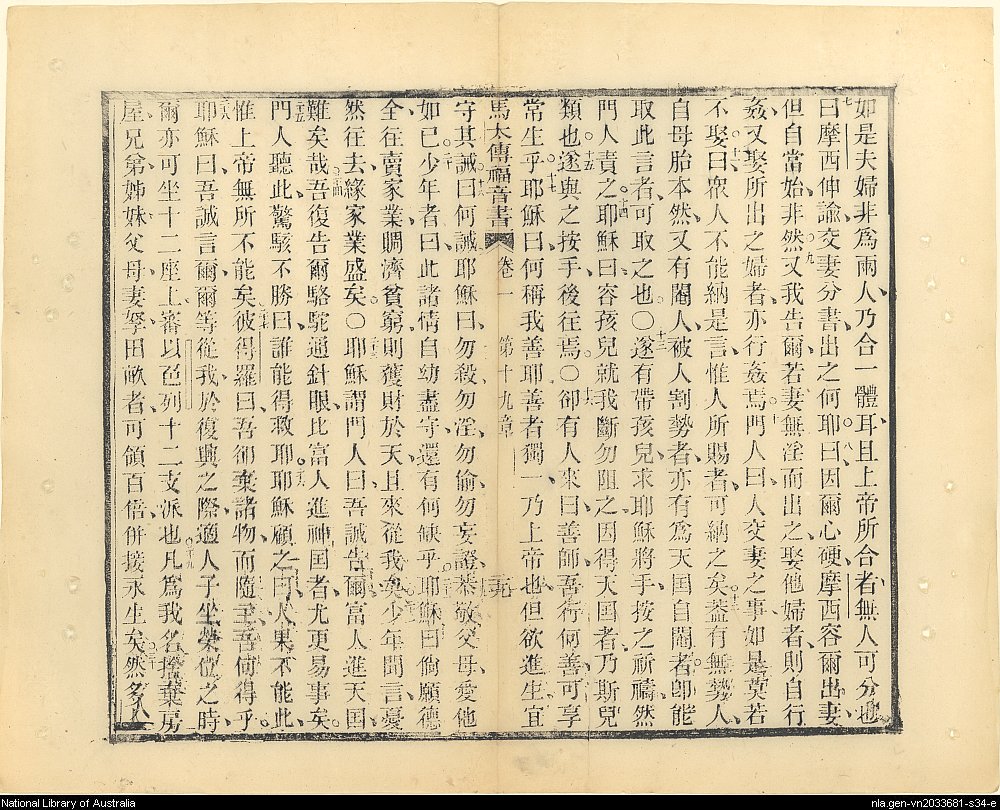 如是夫婦非爲兩人乃合一體耳且上帝所合者無人可分也
七
曰摩西仲諭交妻分書出之何耶曰因爾心硬摩西容爾出妻
八
但自當始非然又我告爾若妻無淫而出之娶他婦者則自行
九
姦又娶所出之婦者亦行姦焉門人曰人交妻之事如是莫若
十
不娶曰衆人不能納是言惟人所賜者可納之矣葢有無勢人
十一
十二
自母胎本然又有閹人被人割勢者亦有爲天国自閹者卽能
取此言者可取之也〇遂有帶孩兒求耶穌將手按之祈禱然
十三
門人責之耶穌曰容孩兒就我斷勿阻之因得天国者乃斯兒
十四
類也遂與之按手後往焉〇卻有人來曰善師吾行何善可享
十五
十六
常生乎耶穌曰何稱我善耶善者獨一乃上帝也但欲進生宜
十七
馬太傳福音書 卷一 第十九章 三九
守其誡曰何誡耶穌曰勿殺勿淫勿偷勿妄證恭敬父母愛他
十八
十九
如己少年者曰此諸情自幼盡守還有何缺乎耶穌曰倘願德
二十
全往賣家業賙濟貧窮則獲財於天且來從我矣少年聞言憂
然往去緣家業盛矣〇耶穌謂門人曰吾誠告爾富人進天国
二十三
難矣哉吾復告爾駱駝通針眼比富人進神国者尤更易事矣
二十四
門人聽此驚駭不勝曰誰能得救耶耶穌顧之曰人果不能此
二十五
二十六
惟上帝無所不能矣彼得羅曰吾卻棄諸物而隨主吾何得乎
二十七
耶穌曰吾誠言爾爾等從我於復興之際適人子坐榮位之時
二十八
爾亦可坐十二座上審以色列十二支派也凡爲我名撥棄房
二十九
屋兄弟姊妹父母妻孥田畝者可領百倍併接永生矣然多人
三十
National Library of Australia
nla.gen-vn2033681-s34-e